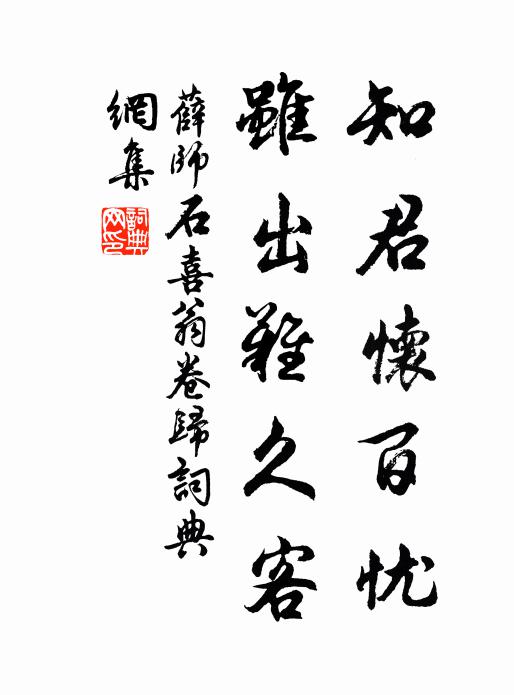 知君懷百忧
雖出難久客
薛師石喜翁卷歸詞典
網集
詞典網印